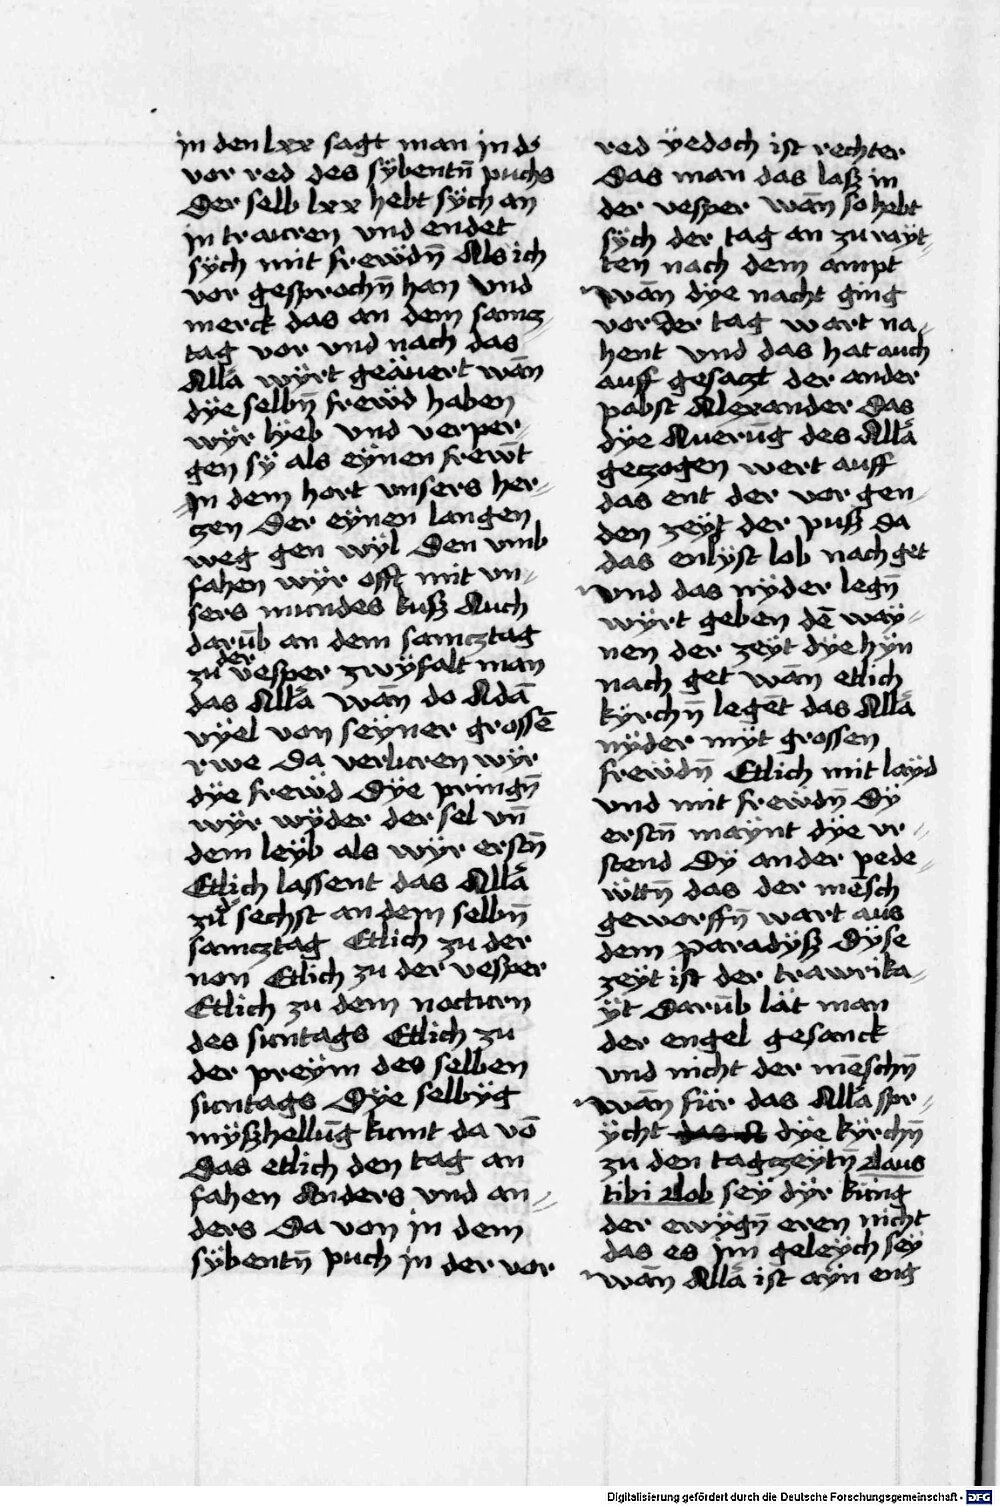 in den lxx sagt man in dˢ
vor red des sÿbentn̄ puchs
Der selb lxx hebt sÿch an
in trauren vnd endet
sÿch mit frewdn̄ Als ich
vor gesprochn̄ han vnd
merck das an dem samcz-
tag vor vnd nach das
Alla wÿrt geäuert wān
dÿe selbn̄ frewd haben
wÿr lÿeb vnd verper-
gen sÿ als eÿnen frewt
In dem hort vnsers her-
zen Der eÿnen langen
weg gen wÿl Den vmb
fahen wÿr offt mit vn-
sers mundes kuß Auch
darūb an dem samcztag
zu der vesper zwÿfalt man
das Alla wān do Adā
vÿel von seÿner grossē
rwe Da verluren wÿr
dÿe frewd Dÿe pringn̄
wÿr wÿder der sel vn̄
dem leÿb als wÿr erstn̄
Etlich lassent das Alla
zu dˢ sechst an dem selbn̄
samcztag Etlich zu der
non Etlich zu der vesper
Etlich zu dem nocturn
des suntags Etlich zu
der preÿm des selben
suntags Dÿe selbÿg
mÿßhellūg kumt da vō
Das etlich den tag an
fahen Anders vnd an-
ders Da von in dem
sÿbentn̄ puch in der vor
red ÿedoch ist rechter
Das man das laß in
der vesper wān so hebt
sÿch der tag an zu raÿt-
ten nach dem ampt
wān dÿe nacht ging
vor der tag wart na-
hent vnd das hat auch
auff gesaczt der ander
pabst Alexander Das
dÿe Auerūg des Alla
geczogen wert auff
das ent der vor gen-
den zeÿt der puß da
das enlÿst lob nach get
vnd das nÿder legn̄
wÿrt geben dē waÿ-
nen der zeÿt dÿe hÿn
nach get wān etlich
kÿrchn̄ legēt das Alla
nÿder mÿt grossen
frewdn̄ Etlich mit laÿd
vnd mit frewdn̄ Dÿ
erstn̄ maÿnt dÿe vr-
stend Dÿ ander pede-
wttn̄ das der mēsch
geworffn̄ wart aus
dem paradÿß Dÿse
zeÿt ist der trawrika-
ÿt Darūb lät man
der engel gesanck
vnd nicht der mēschn̄
wān für das Alla spr-
ÿcht dÿe kÿrchn̄
zu den tagczeÿtn̄ Laus
tibi Lob seÿ dÿr küng
der ewÿgn̄ eren nicht
das es im geleÿch seÿ
wān Alla ist aÿn eng